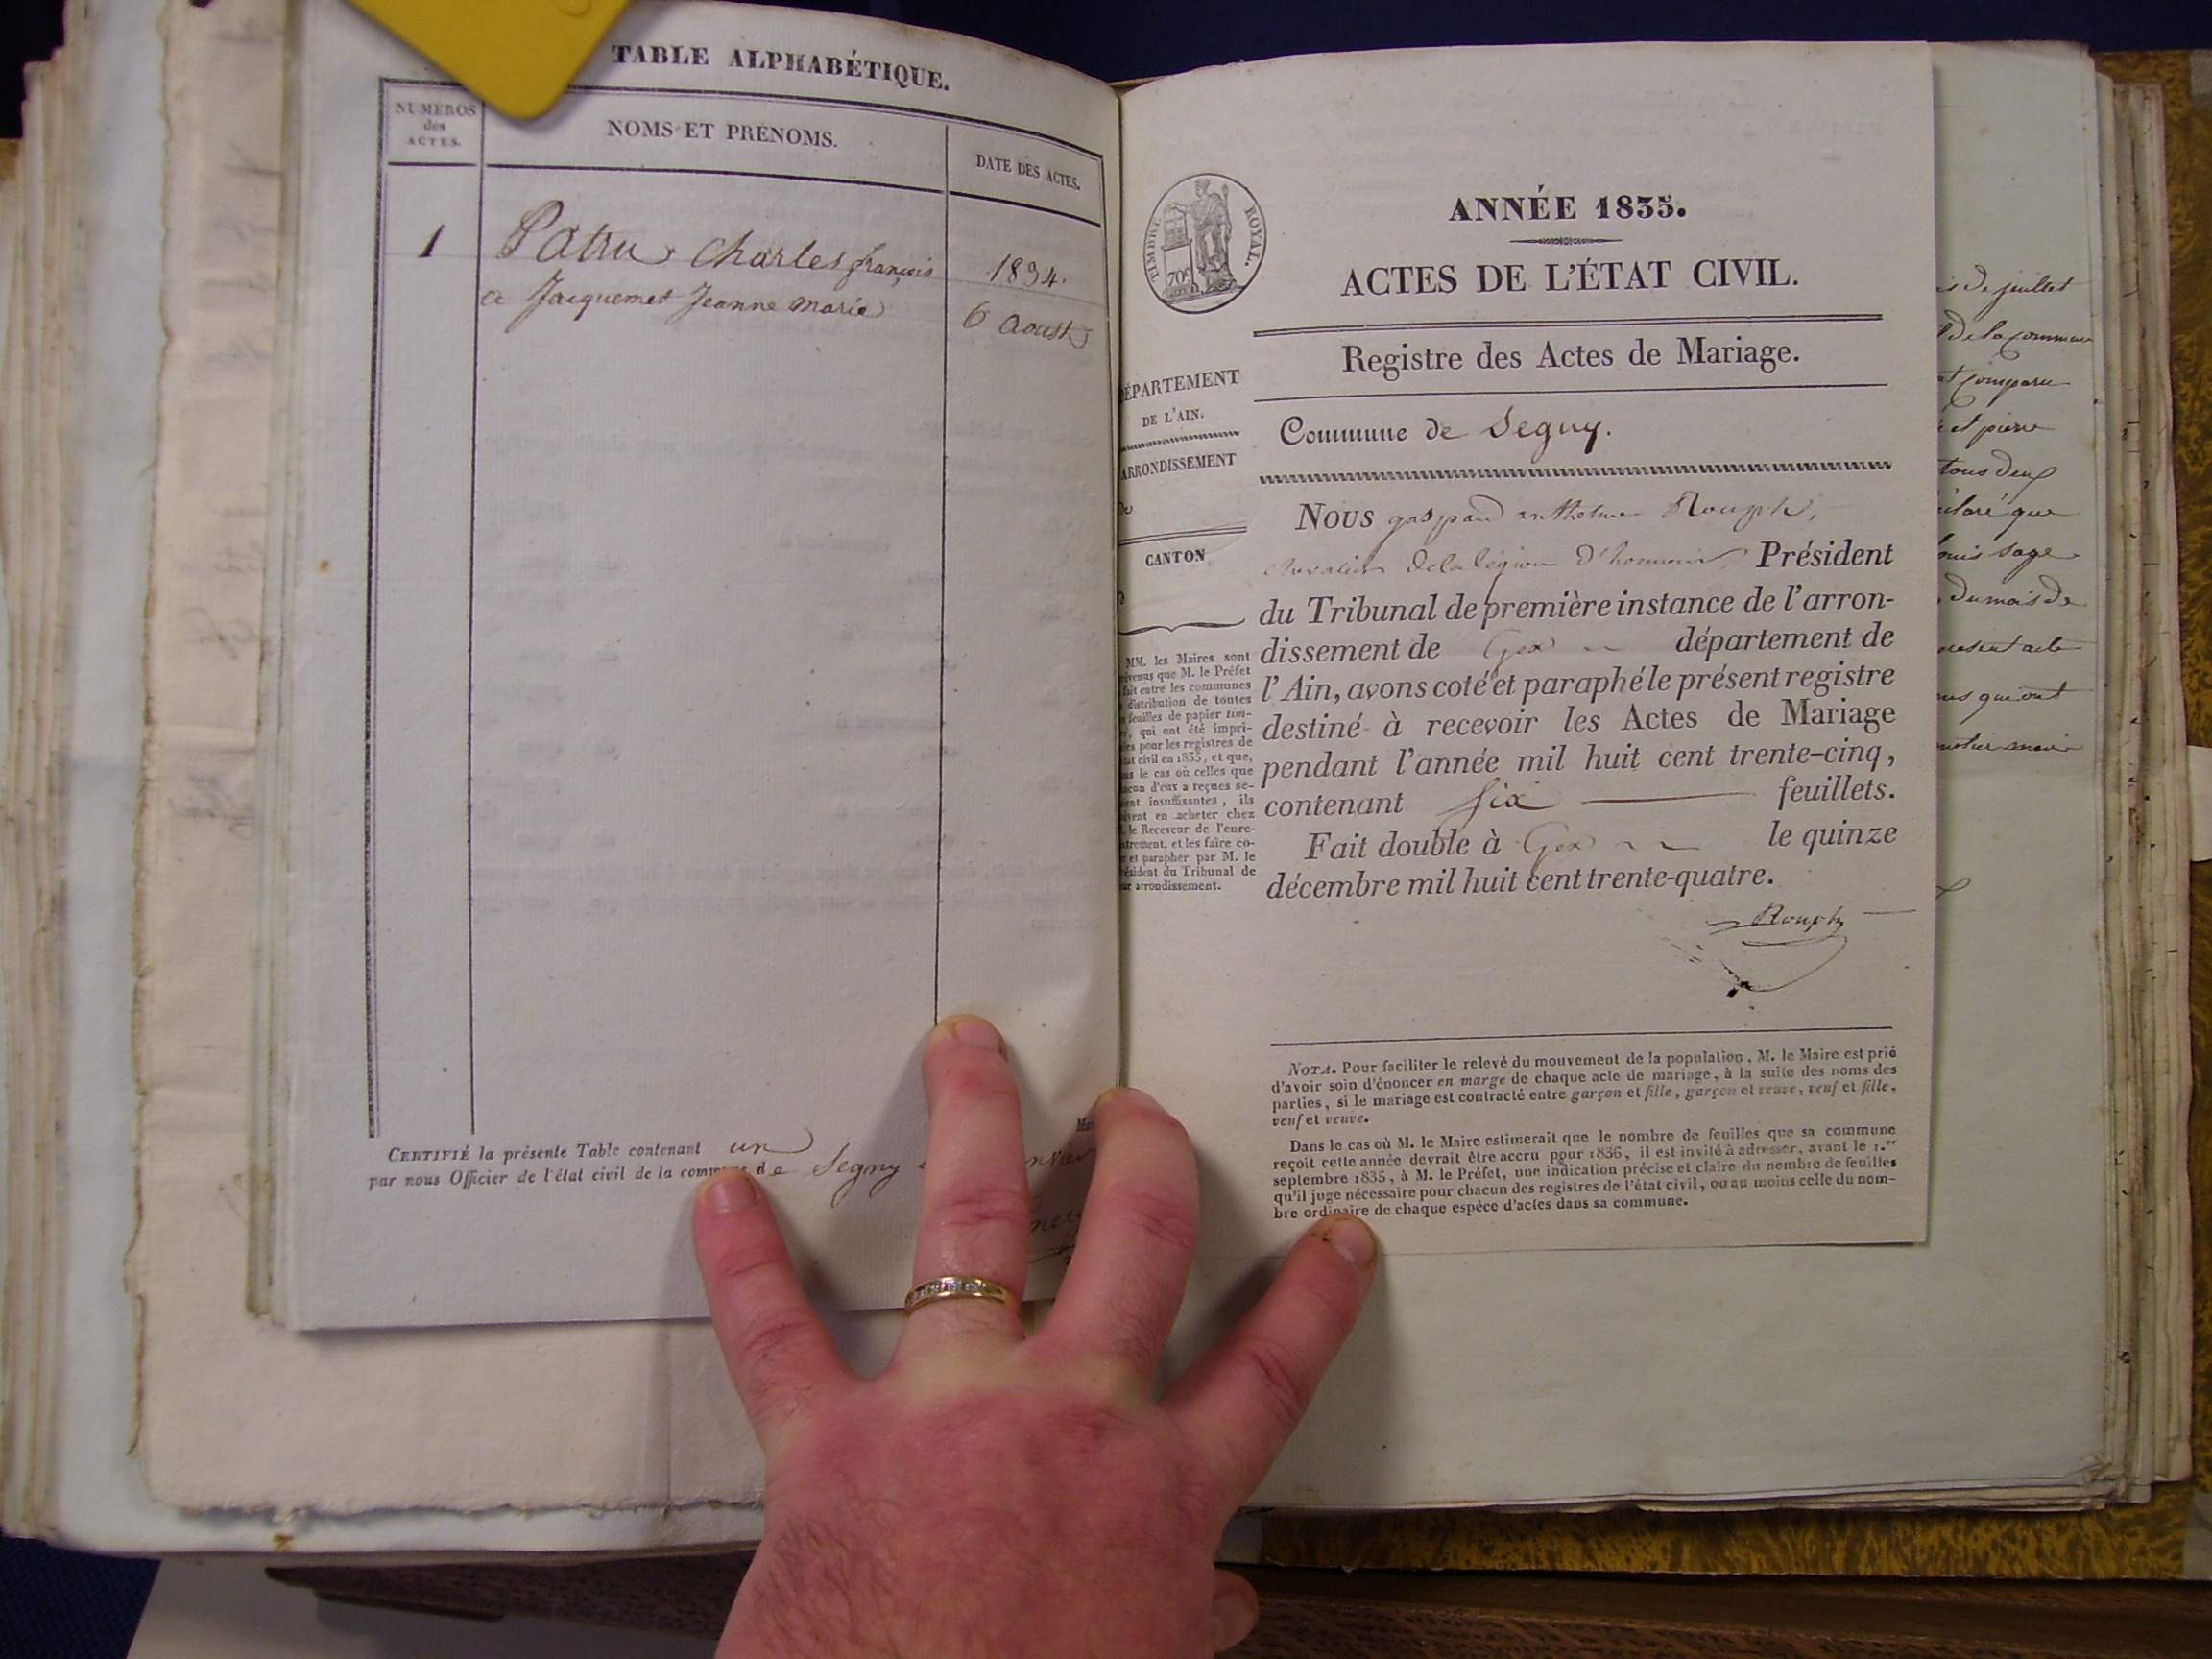 TABLE ALPHABÉTIQUE.
NUMÉROS
des
ACTES.
NOMS ET PRÉNOMS.
DATE DES ACTES.
1
Patru Charles françois
a Jacquemet Jeanne marie
1834.
6 Aoust
CERTIFIÉ la présente Table contenant un
par nous Officier de l'état civil de la commune de Segny
TIMBRE ROYAL.
70c
ANNÉE 1835.
ACTES DE L'ÉTAT CIVIL.
Registre des Actes de Mariage.
DÉPARTEMENT
DE L'AIN.
ARRONDISSEMENT
de
CANTON
MM. les Maires sont
prévenus que M. le Préfet
fait entre les communes
distribution de toutes
feuilles de papier tim-
qui ont été impri-
pour les registres de
civil en 1835, et que,
le cas où celles que
d'eux a reçues se-
insuffisantes, ils
en acheter chez
le Receveur de l'enre-
et les faire co-
et parapher par M. le
Président du Tribunal de
arrondissement.
Commune de Segny.
Nous gaspard anthelme Rouph,
chevalier de la légion d'honneur Président
du Tribunal de première instance de l'arron-
dissement de Gex département de
l'Ain, avons coté et paraphé le présent registre
destiné à recevoir les Actes de Mariage
pendant l'année mil huit cent trente-cinq,
contenant six feuillets.
Fait double à Gex le quinze
décembre mil huit cent trente-quatre.
Rouph
NOTA. Pour faciliter le relevé du mouvement de la population, M. le Maire est prié
d'avoir soin d'énoncer en marge de chaque acte de mariage, à la suite des noms des
parties, si le mariage est contracté entre garçon et fille, garçon et veuve, veuf et fille,
veuf et veuve.
Dans le cas où M. le Maire estimerait que le nombre de feuilles que sa commune
reçoit cette année devrait être accru pour 1836, il est invité à adresser, avant le 1.er
septembre 1835, à M. le Préfet, une indication précise et claire du nombre de feuilles
qu'il juge nécessaire pour chacun des registres de l'état civil, ou au moins celle du nom-
bre ordinaire de chaque espèce d'actes dans sa commune.
de juillet
de la commune
comparu
et pierre
tous deux
que
sage
du mois de
acte
qui ont